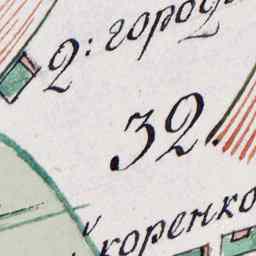 2: город
32.
коренко